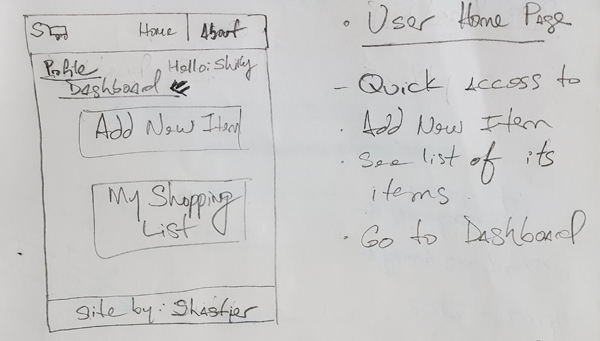 Home | About
Profile
Hello: Shily
Dashboard
Add New Item
My Shopping
List
Site by: Shastjer
• User Home Page
- Quick Access to
• Add New Item
• See list of its
items.
• Go to Dashboard